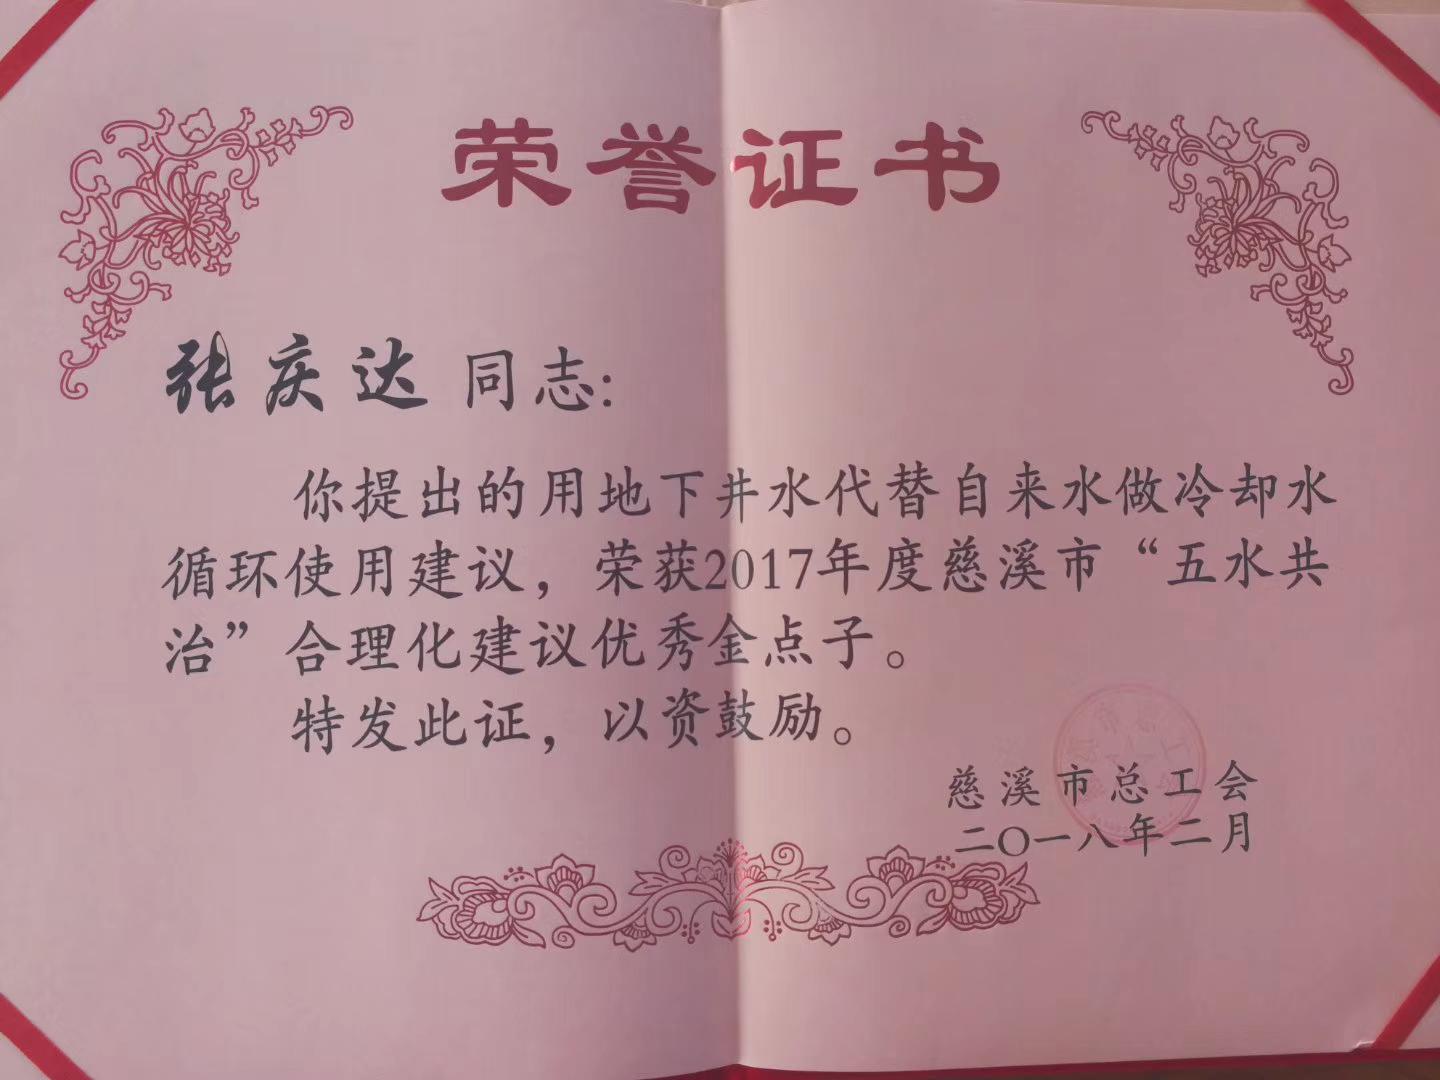 荣誉证书
张庆达 同志:
你提出的用地下井水代替自来水做冷却水
循环使用建议，荣获2017年度慈溪市“五水共
治”合理化建议优秀金点子。
特发此证，以资鼓励。
慈溪市总工会
二〇一八年二月